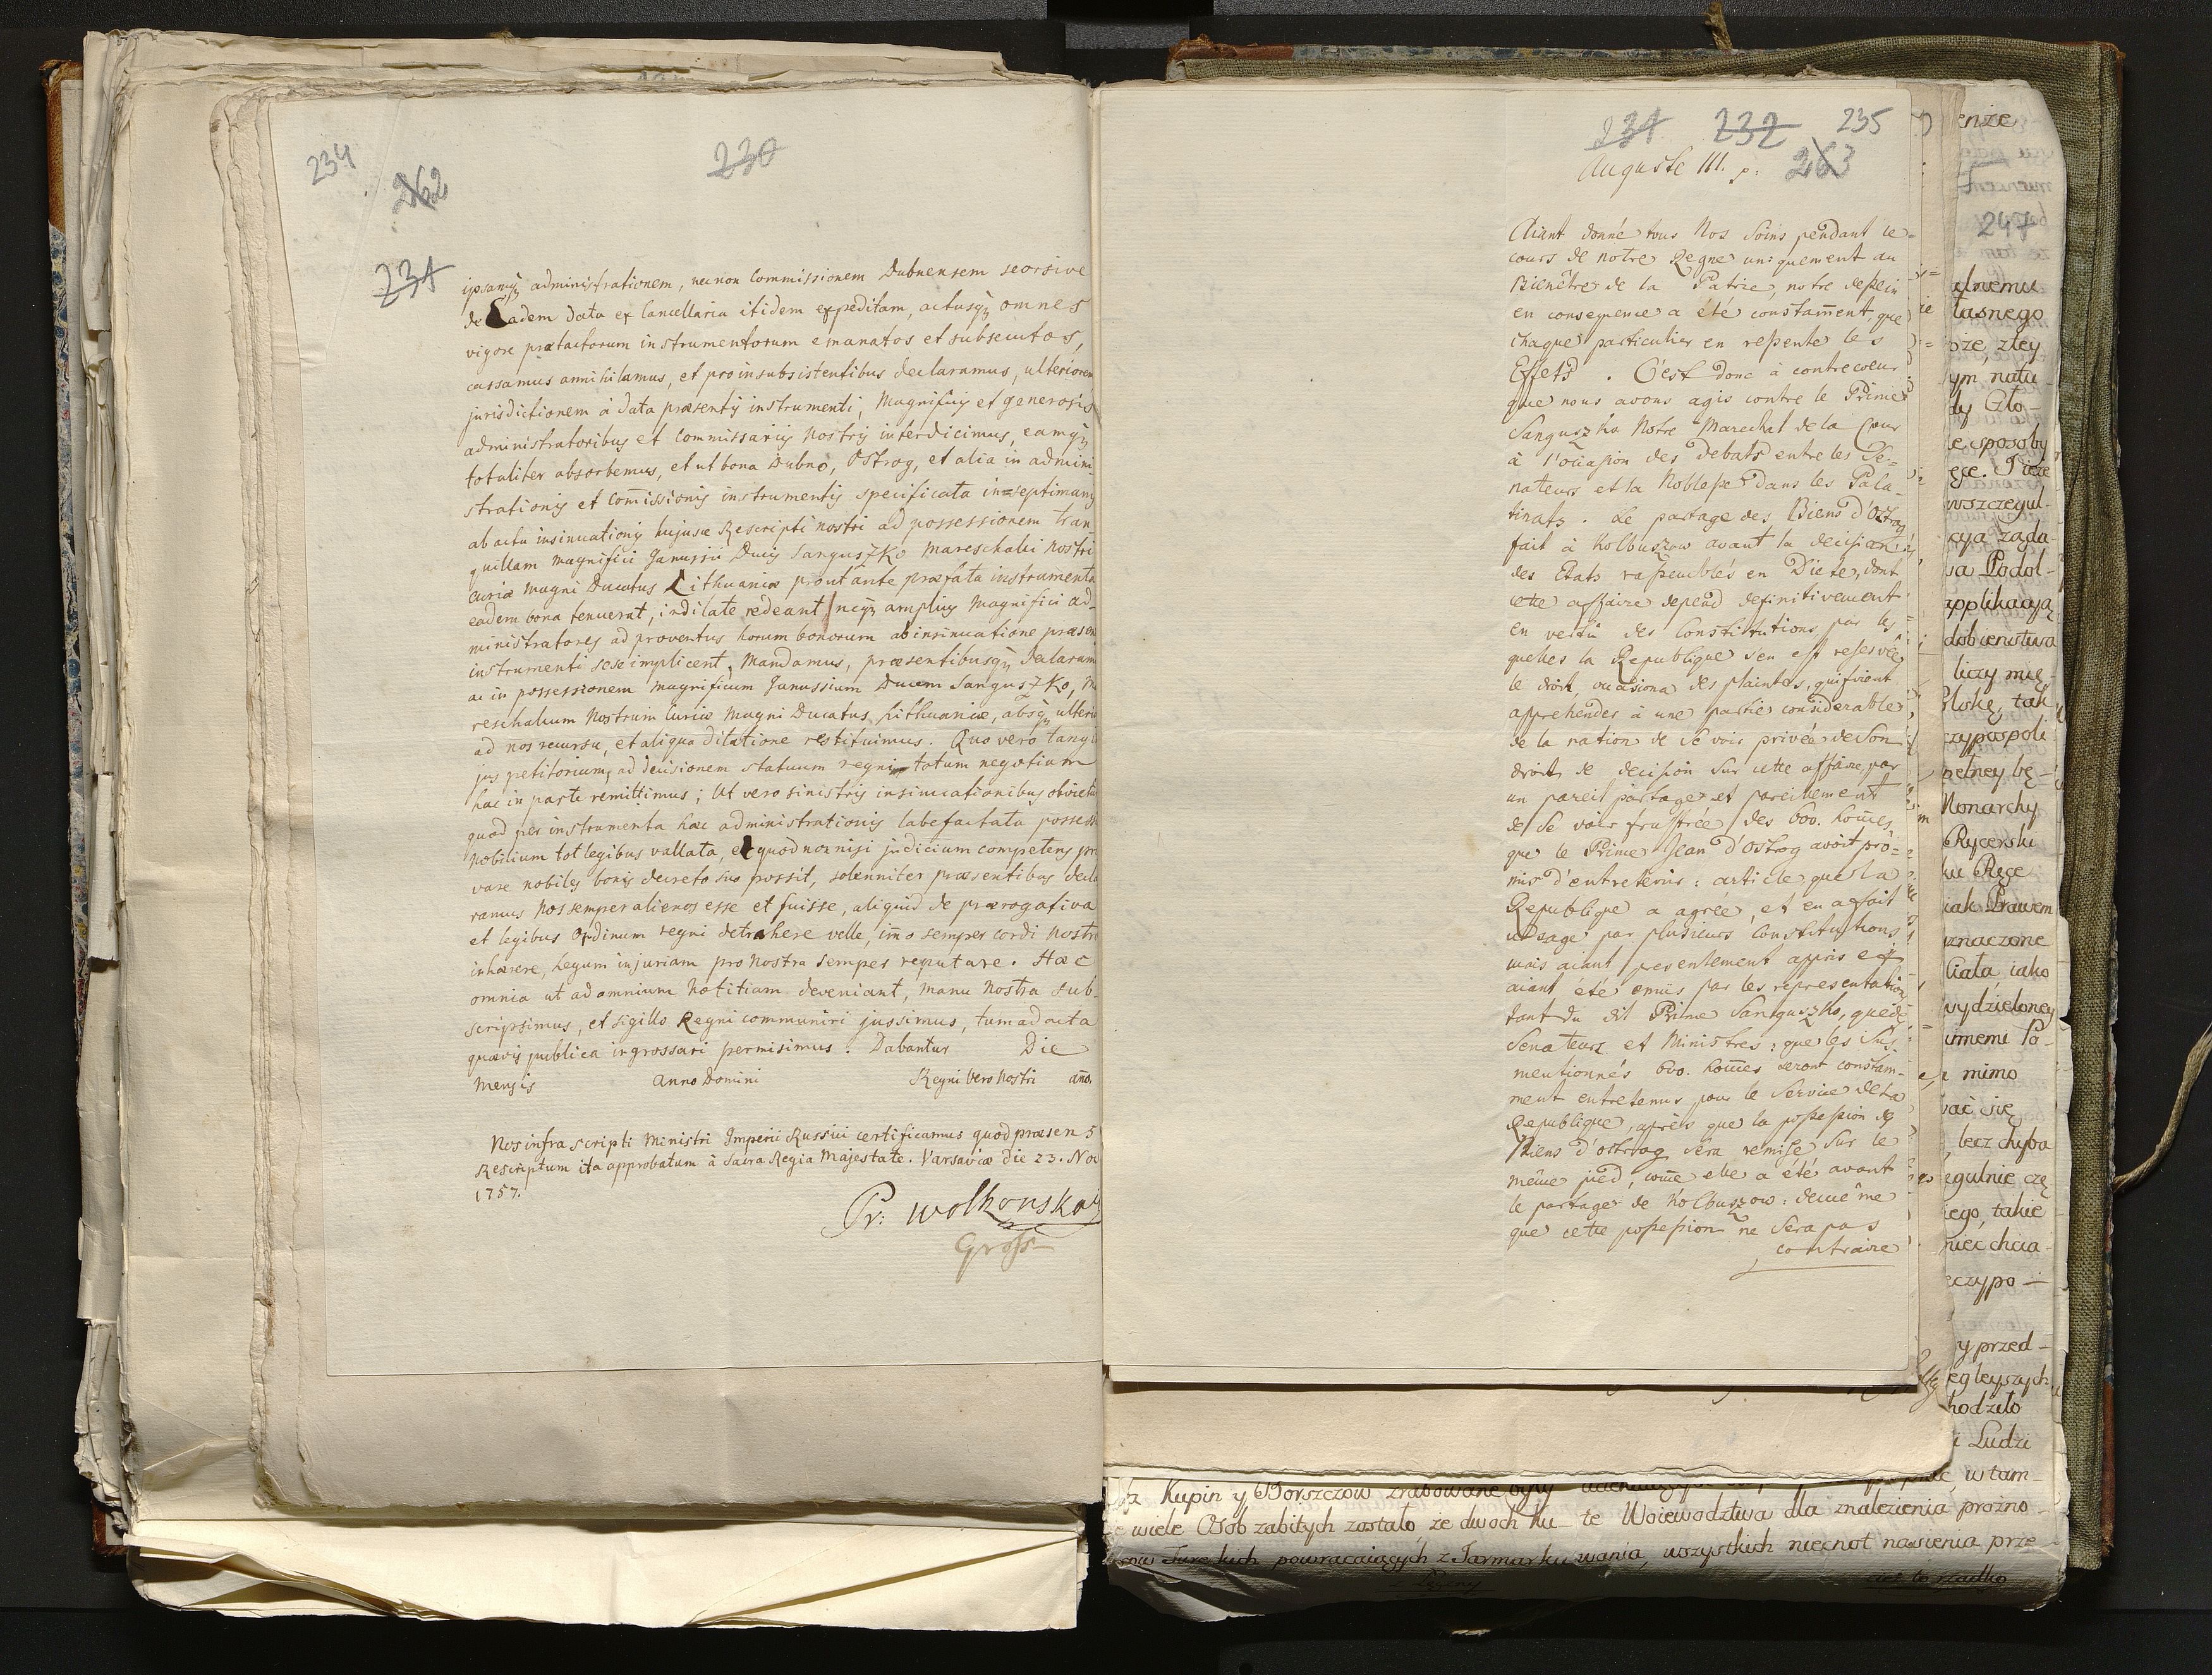 234
262
230
231
ipsamq̃ administrationem, nec non Commissionem Dubnensem seorsive
de Eadem data ex Cancellaria itidem expeditam, actusq̃ omnes
vigore præfactorum instrumentorum emanatos et subsecutos,
cassamus annihilamus, et pro insubsistentibus declaramus, ulteriorem
jurisdictionem à data præsentis instrumenti, Magnificis et generosis
administratoribus et Commissariis Nostris interdicimus, eamq̃
totaliter absorbemus, et ut bona Dubno, Ostrog, et alia in admini-
strationis et Com̃issionis instrumentis specificata in septimanis
ab actu insinuationis hujusce Rescripti nostri ad possessionem tran
quillam Magnifici Janussii Ducis Sanguszko Mareschalci Nostri
Curiæ Magni Ducatus Lithuaniæ prout ante præfata instrumenta
eadem bona tenuerat, indilate redeant, neq̃ amplius Magnifici ad-
ministratores ad proventus horum bonorum ab insinuatione præsen
instrumenti sese implicent, Mandamus, præsentibusq̃ declaram
ac in possessionem Magnificum Janussium Ducem Sanguszko, M
reschalcum Nostrum Curiæ Magni Ducatus Lithuaniæ, absq̃ ulterio
ad nos recursu, et aliqua dilatione restituimus. Quo vero tangi
jus petitorium, ad decisionem statuum regni totum negotium
hac in parte remittimus; Ut vero sinistris insinuationibus obvietu
quod per instrumenta hæc administrationis labefactata possess
Nobilium tot legibus vallata, et quod non nisi judicium competens pri
vare nobiles bonis decreto suo possit, solenniter præsentibus decla
ramus Nos semper alienos esse et fuisse, aliquid de prærogativa
et legibus Ordinum regni detrahere velle, im̃o semper cordi Nostro
inhærere, Legum injuriam pro Nostra semper reputare. Hæc
omnia ut ad omnium notitiam deveniant, manu Nostra sub-
scripsimus, et sigillo Regni communiri jussimus, tum ad acta
quævis publica ingrossari permisimus. Dabantur Die
Mensis Anno Domini Regni Vero Nostri año.
Nos infra scripti Ministri Imperii Russici certificamus quod præsens
Rescriptum ita approbatum à Sacra Regia Majestate. Varsaviæ die 23. Nov
1757.
Pr: Wolkonskoy
Gross
231 232 235
263
Auguste III. p:
Aiant donné tous Nos Soins pendant le
cours de notre Regne uniquement au
Bienêtre de la Patrie, notre dessein
en consequence a été constam̃ent, que
chaque particulier en ressente les
Effets. C'est donc à contrecoeur
que nous avons agis contre le Prince
Sanguszko Notre Marechal de la Cour
à l'ocasion des Debats entre les Se-
nateurs et la Noblesse dans les Pala-
tinats. Le partage des Biens d'Ostrog
fait à Kolbuszow avant la decision
des Etats rassemblés en Diete, dont
cette affaire depend definitivement
en vertù des Constitutions par les
quelles la Republique s'en est reservée
le droit, ocasiona des plaintes, qui firent
apprehender à une partie considerable
de la nation de Se voir privée de Son
droit de decision Sur cette affaire, par
un pareil partage et pareillement
de Se voir frustrée des 600. hom̃es,
que le Prince Jean d'Ostrog avoit pro-
mis d'entretenir: article que la
Republique a agréé, et en a fait
usage par plusieurs Constitutions
mais aiant presentement appris et
aiant été emûs par les representations
tant du dit Prince Sanguszko, que de
Senateurs et Ministres: que les Sus
mentionnés 600. hom̃es seront constam-
ment entretenus pour le Service de la
Republique, après que la possession des
Biens d'ostrog Sera remise Sur le
même pied, com̃e elle a été avant
le partage de Kolbuszow: de même
que cette possession ne Sera pas
contraire
247
enże
własnego
złey
natu-
sposoby
wszczegul-
cya żąda-
Podol-
applikacyą
dobrenstwa
liczy mię-
tak
czypospoli
Monarchy
Rycerski
iak Prawem
Ciała, iako
wydzieloney
mimo
lecz chyba
takie
niec chcia-
eczypo-
y przed-
hodziło
Ludzi
w tam-
Kupin y Borszczow zrabowane były
wiele Osob zabitych zostało, że dwoch Ku- te Woiewodztwa dla znalezienia prożno-
Tureckich powracaiących z Jarmarku wania, wszystkich niecnot nasienia prze